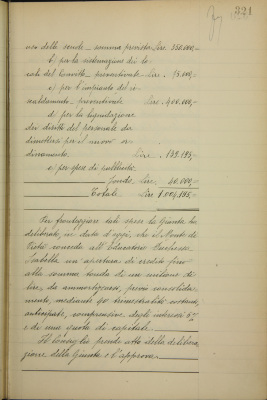 321
neo delle scuole - somma prevista Lire 350.000,-
b) per la sistemazione dei lo-
cali del Convitto, preventivate Lire
c) per l'impianto del ri-
scaldamento, preventivate Lire 400.000,-
d) per la liquidazione
dei diritti del personale da
dimettersi per il nuovo or-
dinamento Lire
e) per spese di pubblicità,
fondo, Lire 60.000,-
Totale Lire 1.004.195,-
Per fronteggiare tali spese la Giunta ha
deliberato, in data d'oggi, che il Monte di
Pietà conceda all'Educatorio
Isabella un'apertura di credito fino
alla somma tonda di un milione di
lire, da ammortizzarsi, previo consolida-
mento, mediante 40 trimestralità costanti,
anticipate, comprensive degli interessi
e di una quota di capitale.
Il Consiglio prende atto della delibera-
zione della Giunta e l'approva.